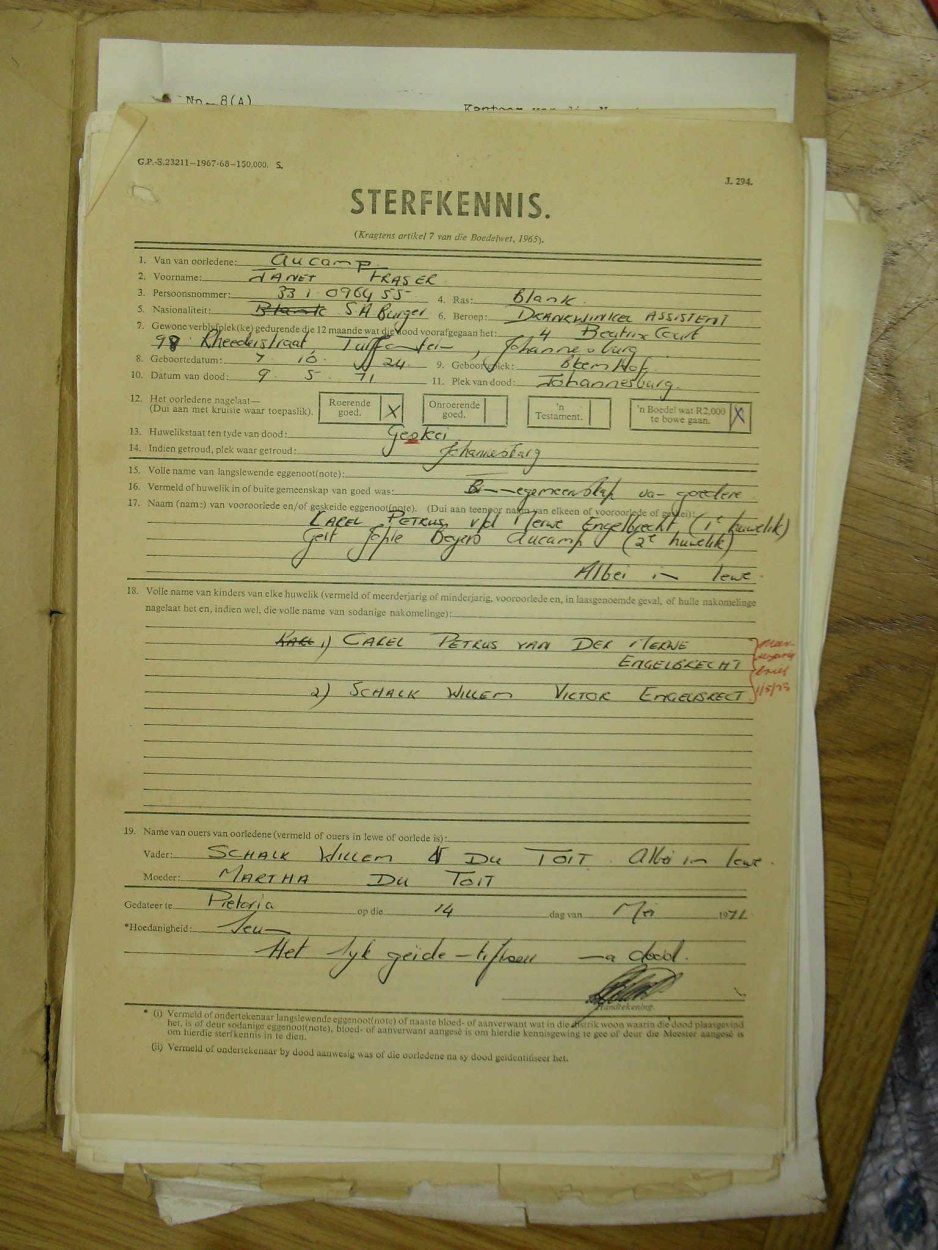 No. 8(A)
G.P.-S.23211—1967-68—150,000. S.
J. 294.
STERFKENNIS.
(Kragtens artikel 7 van die Boedelwet, 1965).
1. Van van oorledene: Aucamp.
2. Voorname: JANET FRASER
3. Persoonsnommer: 331 096455 4. Ras: Blank.
5. Nasionaliteit: Blank SA Burger 6. Beroep: DRANKWINKEL ASSISTENT
7. Gewone verblyfplek(ke) gedurende die 12 maande wat die dood voorafgegaan het: 4 Beatrix Court
98 Rheederstraat Turffontein, Johannesburg
8. Geboortedatum: 7 10 24 9. Geboorteplek: Bloem Hof
10. Datum van dood: 9 5 71 11. Plek van dood: Johannesburg.
12. Het oorledene nagelaat— (Dui aan met kruisie waar toepaslik). Roerende goed. X Onroerende goed. 'n Testament. 'n Boedel wat R2,000 te bowe gaan. X
13. Huwelikstaat ten tyde van dood: Geskei
14. Indien getroud, plek waar getroud: Johannesburg
15. Volle name van langslewende eggenoot(note):
16. Vermeld of huwelik in of buite gemeenskap van goed was: gemeenskap van goedere.
17. Naam (name) van vooroorlede en/of geskeide eggenoot(note). (Dui aan teenoor naam van elkeen of vooroorlede of geskei):
CAREL PETRUS v/d Merwe Engelbrecht (1e huwelik)
Beyers Aucamp (2e huwelik)
Albei in lewe.
18. Volle name van kinders van elke huwelik (vermeld of meerderjarig of minderjarig, vooroorlede en, in laasgenoemde geval, of hulle nakomelinge
nagelaat het en, indien wel, die volle name van sodanige nakomelinge):
1) CAREL PETRUS VAN DER MERWE
ENGELBRECHT
2) SCHALK WILLEM VICTOR ENGELBRECT
19. Name van ouers van oorledene (vermeld of ouers in lewe of oorlede is):
Vader: SCHALK WILLEM DU TOIT Albei in lewe.
Moeder: MARTHA DU TOIT
Gedateer te Pretoria op die 14 dag van Mei 1971
*Hoedanigheid: Seun
Het lyk na dood.
Handtekening.
* (i) Vermeld of ondertekenaar langslewende eggenoot(note) of naaste bloed- of aanverwant wat in die distrik woon waarin die dood plaasgevind
het, is of deur sodanige eggenoot(note), bloed- of aanverwant aangesê is om hierdie kennisgewing te gee of deur die Meester aangesê is
om hierdie sterfkennis in te dien.
(ii) Vermeld of ondertekenaar by dood aanwesig was of die oorledene na sy dood geïdentifiseer het.